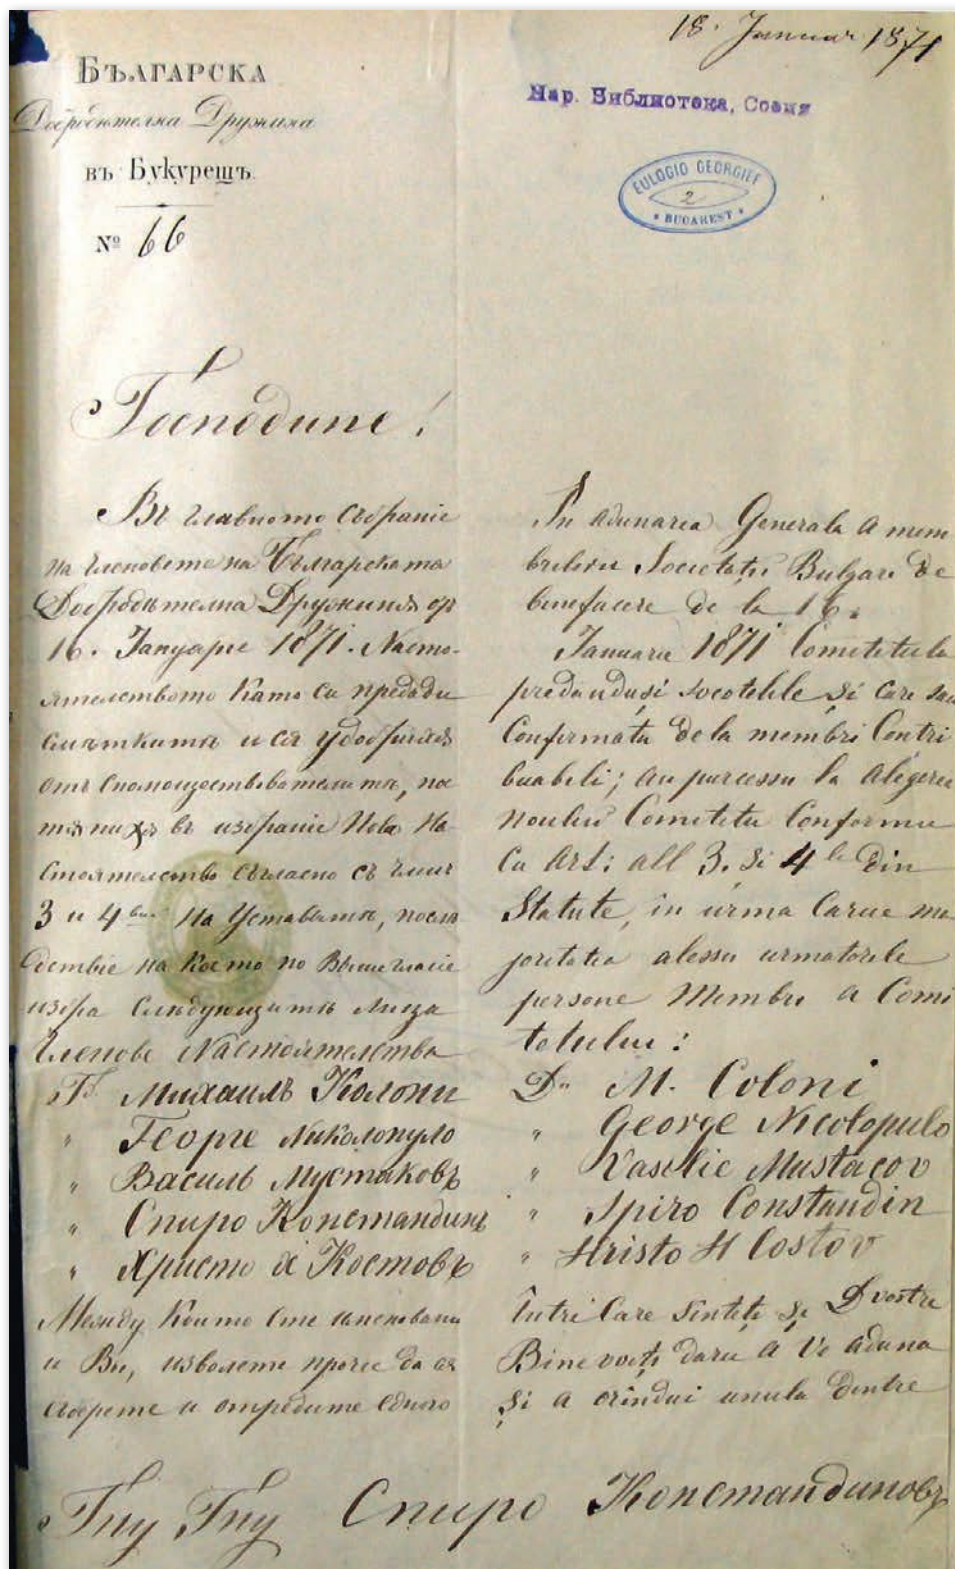 18. Januar 1871
БЪЛГАРСКА
Добродѣтелна Дружина
въ Букурещъ.
№ 66
Нар. Библиотека, София
EULOGIO GEORGIEF
2
* BUCAREST *
Господине!
Въ главното събрание
на членовете на Българската
Добродѣтелна Дружина отъ
16. Януарие 1871. Насто-
ятелството като си предади
смѣткитѣ и ся удобрихѫ
отъ спомоществователитѣ, по
въ избрание ново На-
стоятелство съгласно съ член
3 и 4 на Уставътъ, послѣ
дствие на което по вишегласие
избра слѣдующитѣ лица
Членове Настоятелства
Г. Михаилъ Колони
" Георге Николопуло
" Василь Мустаковъ
" Спиро Константдинъ
" Христо х Костовъ
Между които сте
и Ви, изволете прочее да ся
съберете и отредите едного
In adunarea Generala a mem
briloru Societații Bulgare de
benefacere de la 16.
Januarie 1871 Comitetulu
predanduși socotelile și care sau
Confirmatu de la membri Contri
buabili; au purcessu la alegerea
noului Comitetu Conformu
cu Art: all 3. și 4 le din
Statute, in urma carue ma
joritatea alessu urmatorile
persone Membri a Comi
tetului:
Dn M. Coloni
" George Nicolopulo
" Vasilie Mustacov
" Spiro Constandin
" Hristo H Costov
Între care sînteți și Dvostre
Binevoiți daru a Ve aduna
și a orîndui unulu dintre
Гну Гну Спиро Константдиновъ